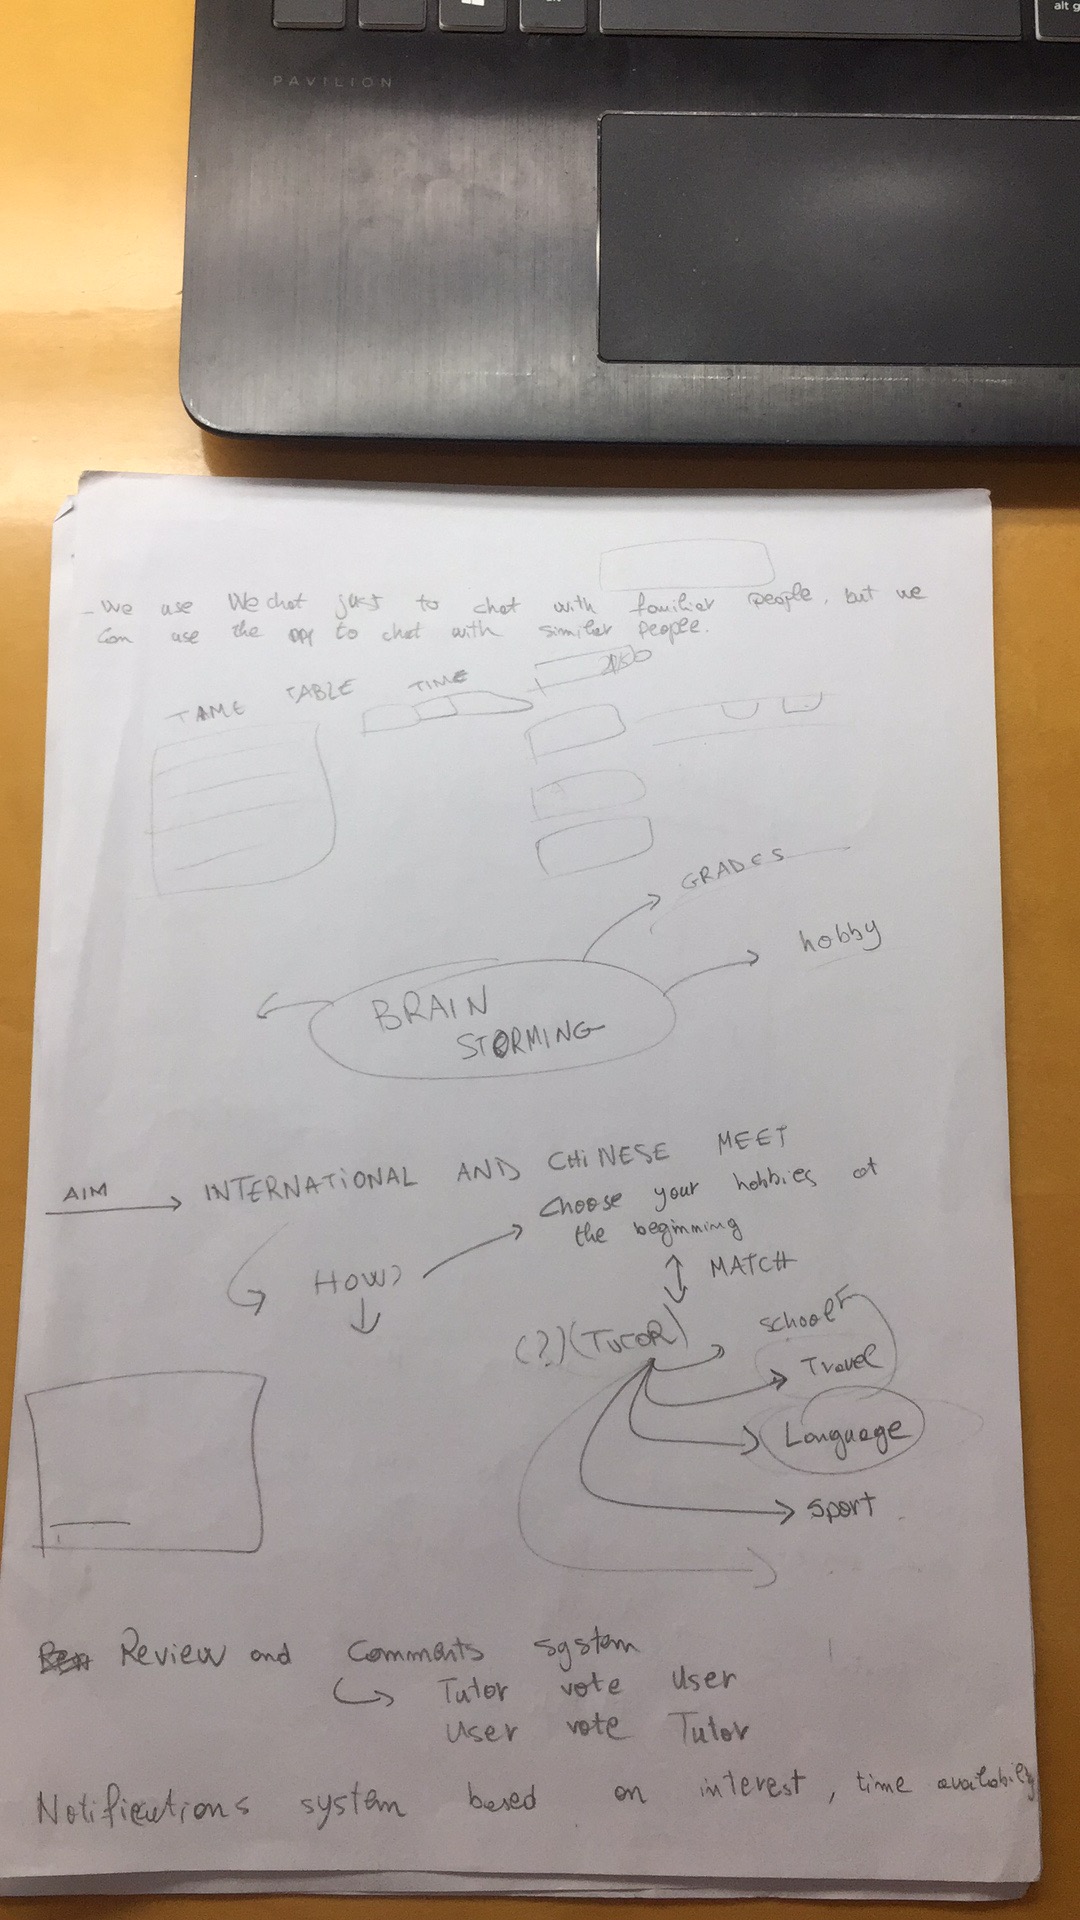 alt g
PAVILION
- We use Wechat just to chat with familier people, but we
can use the app to chat with similer people.
TAME TABLE TIME
GRADES
hobby
BRAIN
STORMING
AIM INTERNATIONAL AND CHINESE MEET
Choose your hobbies at
the beginning
HOW?
MATCH
(?)(TUTOR)
school
Travel
Language
Sport
Review and Comments system
Tutor vote User
User vote Tutor
Notifications system based on interest, time availability